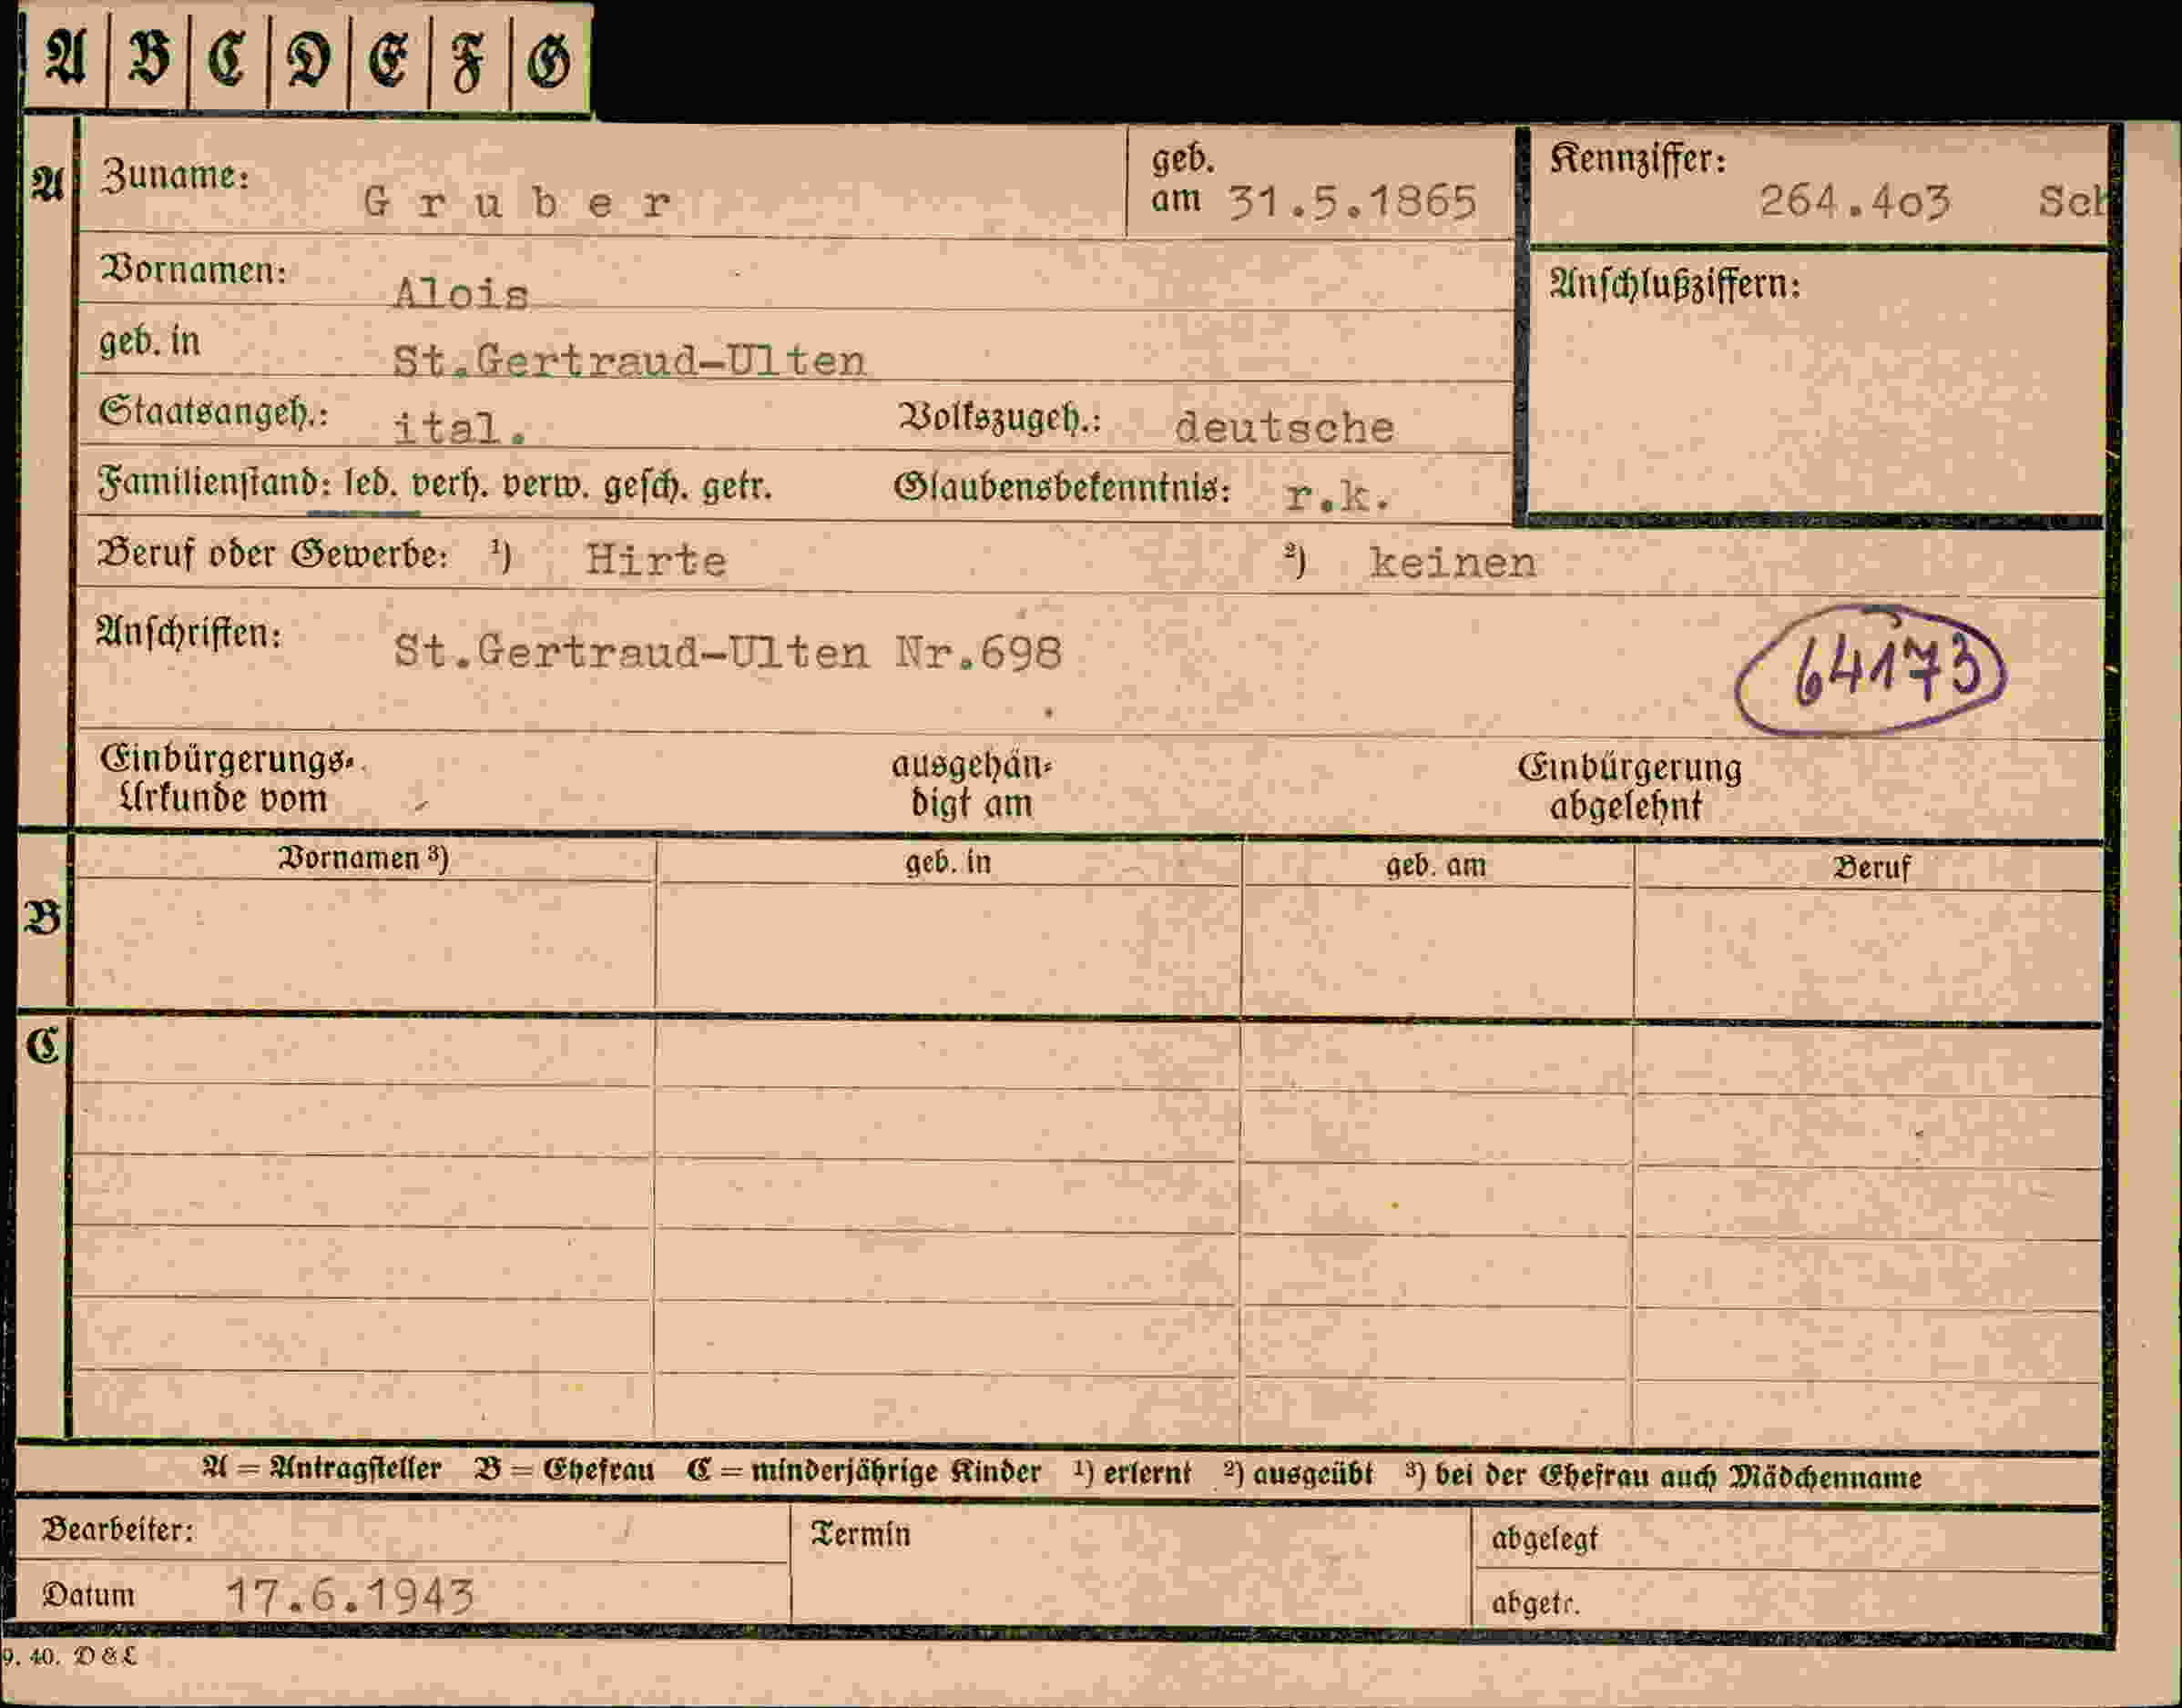 A B C D E F G
A Zuname: Gruber geb. am 31.5.1865 Kennziffer: 264.4o3 Sch
Vornamen: Alois Anschlußziffern:
geb. in St.Gertraud-Ulten
Staatsangeh.: ital. Volkszugeh.: deutsche
Familienstand: led. verh. verw. gesch. getr. Glaubensbekenntnis: r.k.
Beruf oder Gewerbe: ¹) Hirte ²) keinen
Anschriften: St.Gertraud-Ulten Nr.698 64173
Einbürgerungs- ausgehän- Einbürgerung
Urkunde vom digt am abgelehnt
B Vornamen ³) geb. in geb. am Beruf
C
A = Antragsteller B = Ehefrau C = minderjährige Kinder ¹) erlernt ²) ausgeübt ³) bei der Ehefrau auch Mädchenname
Bearbeiter: Termin abgelegt
Datum 17.6.1943 abgetr.
9. 40. D & L